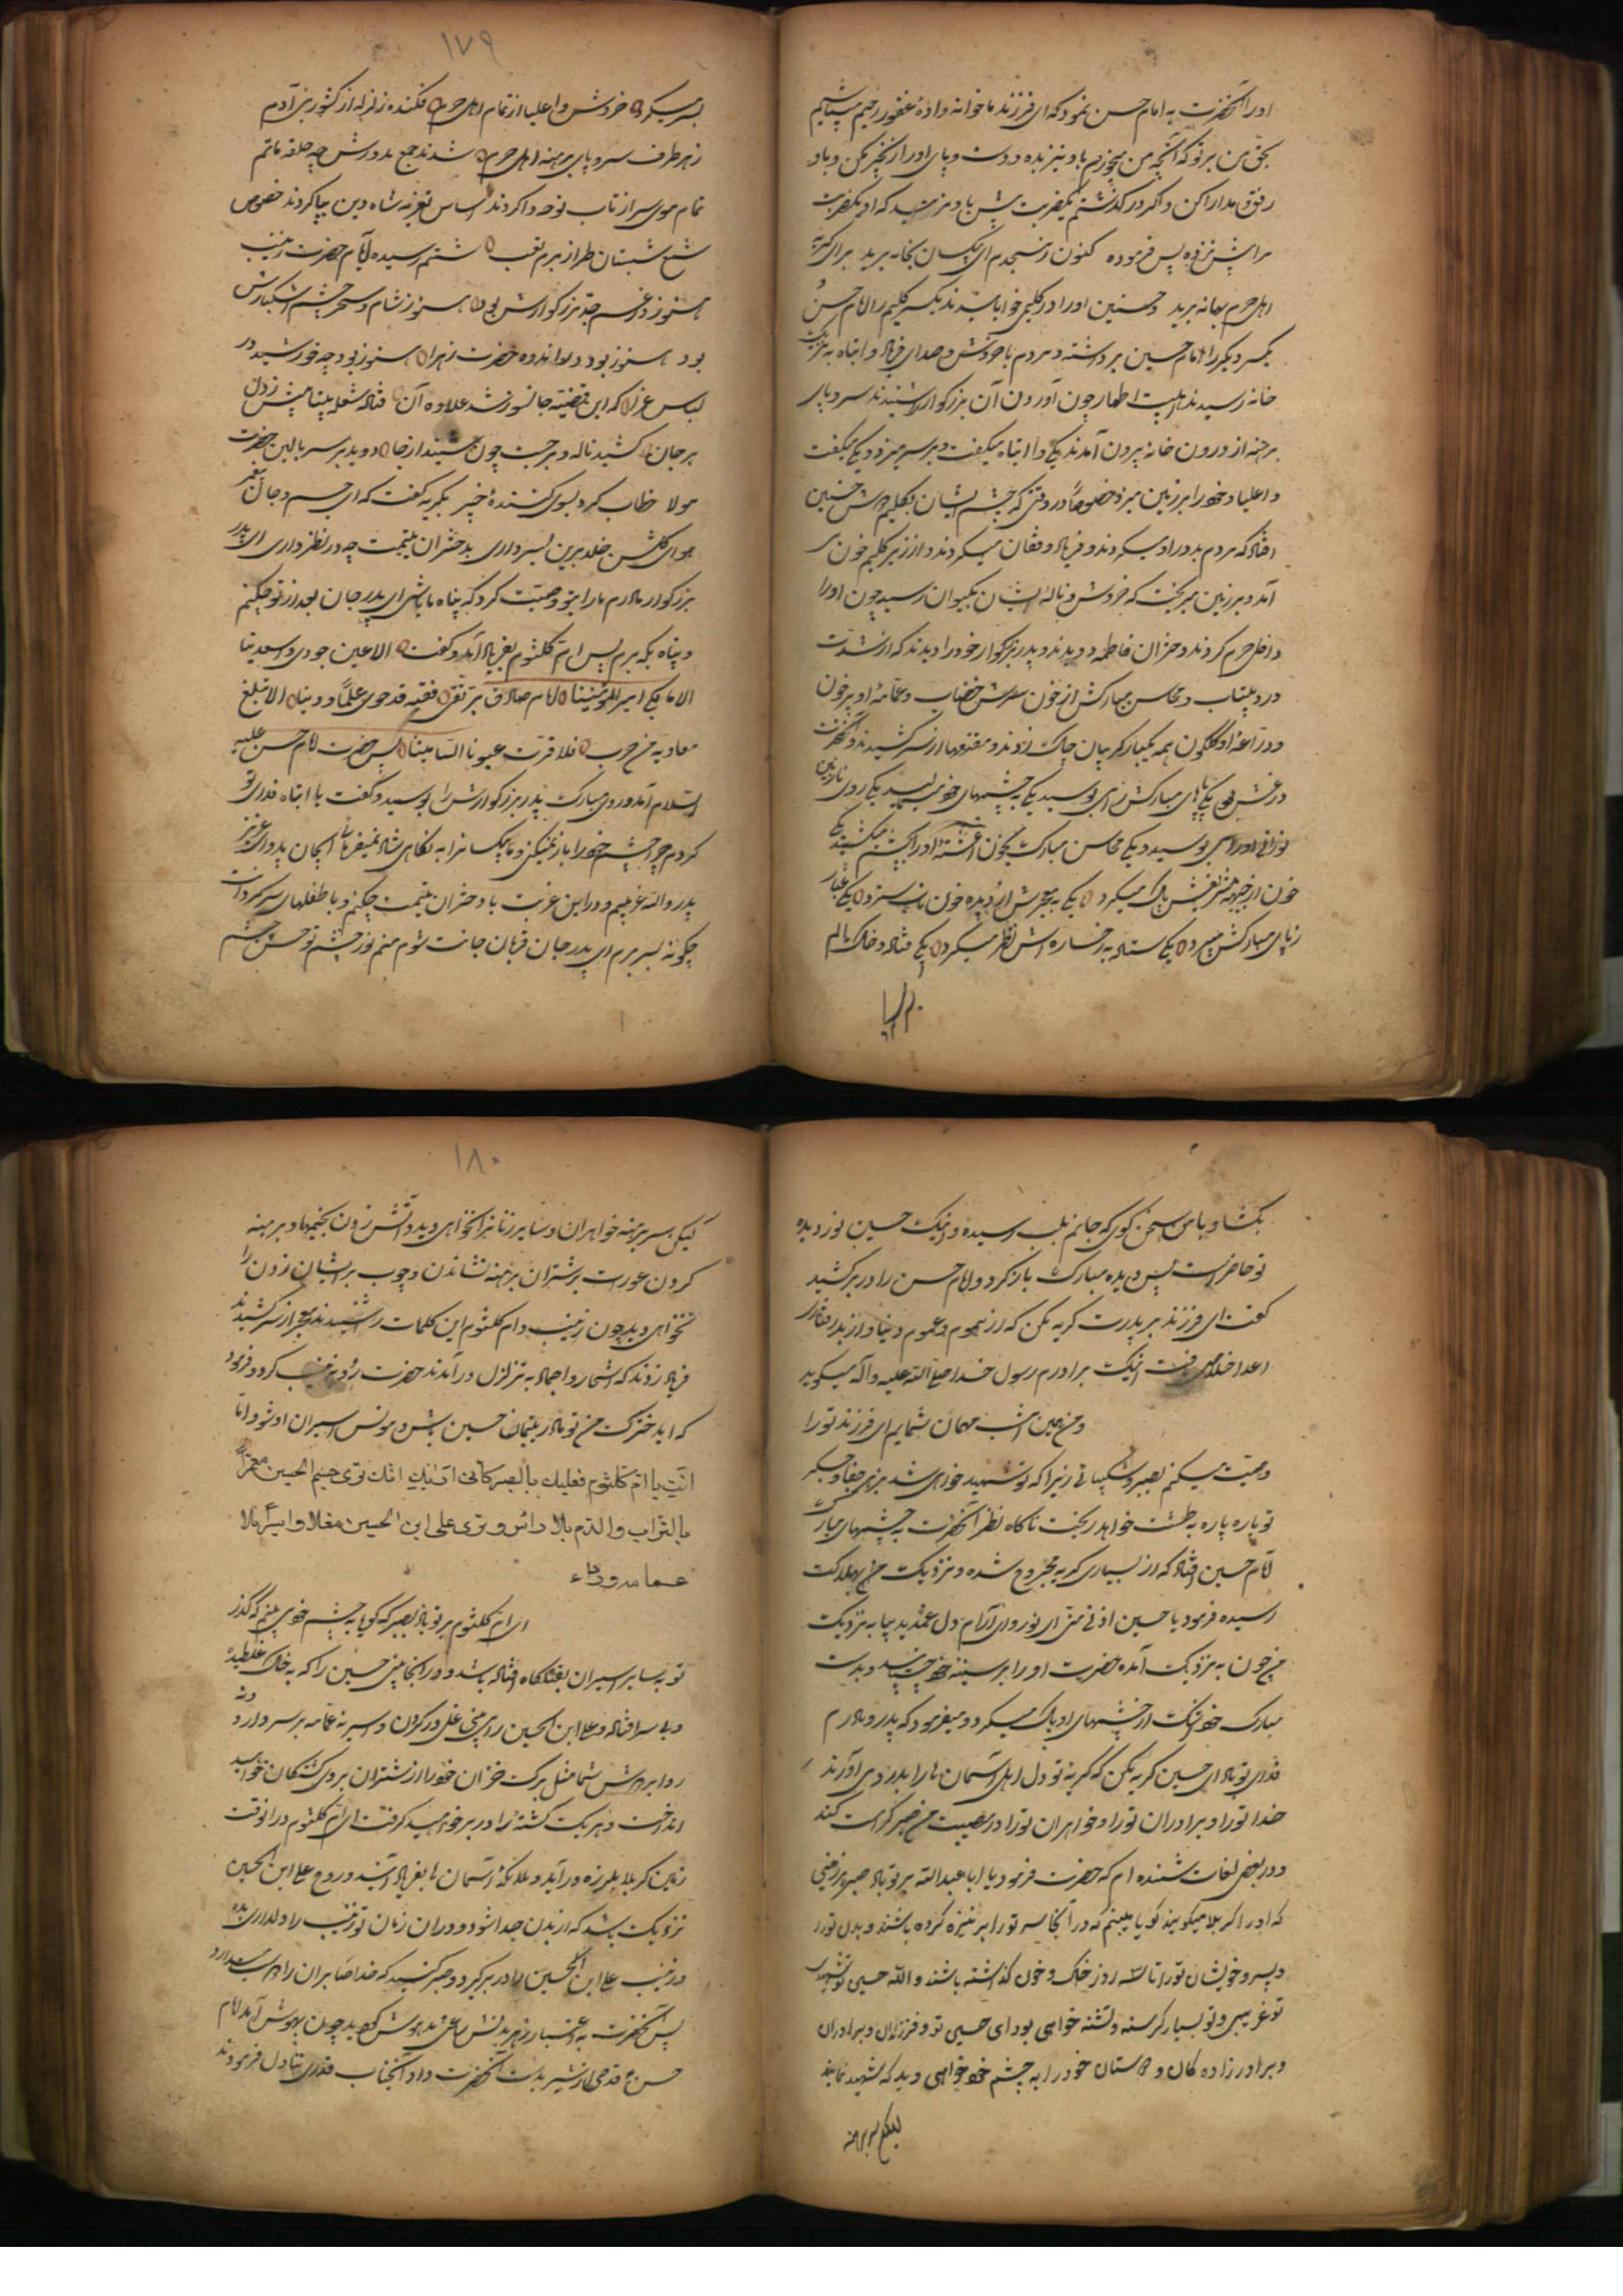 او را آنحضرت به امام حسن نمود که ای فرزند ما خوانه داده غفور رحیم میباشیم
بحق من بر تو که آنچه من میخورم باو نیز بده و دست و پای او را زنجیر مکن و باو
رفق و مدارا کن و اگر در گذشتم یکضربت بیش باو مزنید که او یکضربت
مرا بیش نزده پس فرموده کنون رنجیدم ای بیکسان بخانه برید برای گریه
اهل حرم بهانه برید و حسنین او را در گلیمی خوابانیدند یکسر گلیم را امام حسن و
یکسر دیگر را امام حسین برداشته و مردم با خروش و صدای فریاد و ابتاه به نزدیک
خانه رسیدند اهلبیت اطهار چون آوردن آن بزرگوار را شنیدند سر و پای
برهنه از درون خانه بیرون آمدند یکی وا ابتاه میگفت و بر سر میزد و یکی میگفت
وا علیا و خود را بر زمین میزد خصوصاً در وقتی که چشم ایشان بگلیم و دوش حسنین
افتاد که مردم بدور او میگردند و فریاد و فغان میکردند و از زیر گلیم خون می
آمد و بر زمین میریخت که خروش و ناله ایشان بکیوان رسید چون او را
داخل حرم کردند دختران فاطمه دویدند و پدر بزرگوار خود را دیدند که از شدت
درد بیتاب و محاسن مبارکش از خون سرش خضاب و عمامه او پر خون
و دراعه او گلگون همه یکبار گریبان چاک زدند و مقنعهها از سر کشیدند و آنحضرت
در غش بود یکی پای مبارکش را می بوسید یکی به چشمهای خود میمالید یکی روی نازنین
نورانی او را می بوسید و یکی محاسن مبارک بخون آغشته او را بچشم میکشید یکی
خون از جبهه منورش پاک میکرد یکی به معجرش از دیده خون ناب سترد یکی غبار
ز پای مبارکش میبرد یکی ستاده به رخساره اش نظر میکرد یکی فتاده و خاک الم
۱۷۹
بسر میکرد خروش وا علیا از تمام اهل حرم فکنده زلزله از کشور بنی آدم
ز هر طرف سر و پای برهنه اهل حرم شدند جمع بدورش چه حلقه ماتم
تمام موی سر از تاب نوحه وا کردند اساس تعزیه شاه دین بپا کردند خصوص
شمع شبستان طراز بزم تعب ستم رسیده ایام حضرت زینب
هنوز در غم جد بزرگوارش بود هنوز شام و سحر چشم اشکبارش
بود هنوز بود دل اندوه حضرت زهرا هنوز بود چه خورشید در
لباس عزا که این قضیه جانسوز شد علاوه آن فتاد شعله بیتابیش زدل
بر جان کشید ناله و برجست چون سپند از جا دوید بر سر بالین حضرت
مولا خطاب کرد بسوی کشنده خیبر بگریه گفت که ای جسم و جان پیغمبر
هوای گلشن خلد برین بسر داری بدختران یتیمت چه در نظر داری ای پدر
بزرگوار مادرم ما را بتو وصیت کرد که پناه ما باشی ای پدر جان بعد از تو چکنیم
و پناه بکه بریم پس ام کلثوم بفریاد آمد و گفت الا عین جودی واسعدینا
الا فابکی امیر المؤمنینا امام صادق بر تقی فقیه قد حوی علماً و دینا الا بلغ
معاویة بن حرب فلا قرت عیونا الشامتینا پس حضرت امام حسن علیه
السلام آمد و روی مبارک پدر بزرگوارش را بوسید و گفت یا ابتاه فدای تو
گردم چرا چشم خود را باز نمیکنی و ما بیکسانرا به نگاهی شاد نمیفرمائی ایجان پدر ای عزیز
پدر والله غریبیم و در این غربت با دختران یتیمت چکنم و با طفلهای سرگردانت
چگونه بسر برم ای پدر جان قربان جانت شوم منم نور چشم تو حسن چشم
بگشا و با من سخن گوی که جانم بلب رسیده و اینک حسین نور دیده
تو حاضر است پس دیده مبارک باز کرد و امام حسن را در بر کشید
گفت ای فرزند بر پدرت گریه مکن که از هموم و غموم دنیا و از بدرفتاری
اعدا خلاصی یافت اینک برادرم رسول خدا صلی الله علیه و آله میگوید
و من همین امشب مهمان شمایم ای فرزند تو را
وصیت میکنم بصبر و شکیبائی زیرا که تو شهید خواهی شد بزهر جفا و جگر
تو پاره پاره به طشت خواهد ریخت ناگاه نظر آنحضرت به چشمهای مبارک
امام حسین افتاد که از بسیاری گریه مجروح شده و نزدیک به هلاکت
رسیده فرمود یا حسین ادن منی ای نور و ای آرام دل غمدیده بیا به نزدیک
من چون به نزدیک آمد حضرت او را بر سینه خود چسپانید و بدست
مبارک خود اشک از چشمهای او پاک میکرد و میفرمود که پدر و مادرم
فدای تو باد ای حسین گریه مکن که گریه تو دل اهل آسمان ها را بدرد می آورد
خدا تو را و برادران تو را و خواهران تو را در مصیبت من صبر کرامت کند
و در بعض لغات شنیده ام که حضرت فرمود یا ابا عبدالله بر تو باد صبر بر زمینی
که او را کربلا میگویند گویا میبینم که در آنجا سر تو را بر نیزه کرده باشند و بدن تو را
و پسر و خویشان تو را تا سه روز در خاک و خون گذاشته باشند والله حسین تو شهیدی
تو غریبی و تو بسیار گرسنه و تشنه خواهی بود ای حسین تو و فرزندان و برادران
و برادرزاده گان و دوستان خود را به چشم خود خواهی دید که شهید نمایند
۱۸۰
لیکن سر برهنه خواهران و سایر زنانرا نخواهی دید و آتش زدن بخیمها و برهنه
کردن عورت بر شتران برهنه نشاندن و چوب بر ایشان زدن را
نخواهی دید چون زینب و ام کلثوم این کلمات را شنیدند معجر از سر کشیدند
فریاد زدند که اشجار و جماد به تزلزل در آمدند حضرت رو به زینب کرد و فرمود
که ای دخترک من تو مادر یتیمان حسین باش و مونس اسیران او شو و اما
انت یا ام کلثوم فعلیک بالصبر کانی انک تری جسم الحسین معفراً
بالتراب والدم بلا راس و تری علی ابن الحسین مغلولا و اسیرا بلا
عمامه و رداء
ای ام کلثوم بر تو باد بصبر که گویا به چشم خود می بینم که گذر
تو به سایر اسیران بقتلگاه افتاده باشد و در آنجا بینی حسین را که به خاک غلطیده
و بی سر افتاده و علی ابن الحسین را می بینی غل در گردن و اسیر نه عمامه بر سر دارد و نه
ردا بر دوش شما مثل برگ خزان خود را از شتران بروی کشتگان خواهید
انداخت و هر یک کشته را در بر خواهید گرفت ای ام کلثوم در آنوقت
زمین کربلا بلرزه در آید و ملائکه آسمان ها بفریاد آیند و روح علی ابن الحسین
نزدیک باشد که از بدن جدا شود و در آن زمان تو زینب را دلداری بده
و زینب علی ابن الحسین را در بر گیرد و صبر کنید که خدا صابران را دوست میدارد
پس آنحضرت به اعتبار زهر بدنش ساعتی مدهوش گردید چون بهوش آمد امام
حسن ع قدحی از شیر بدست آنحضرت داد آنجناب قدری تناول فرمودند